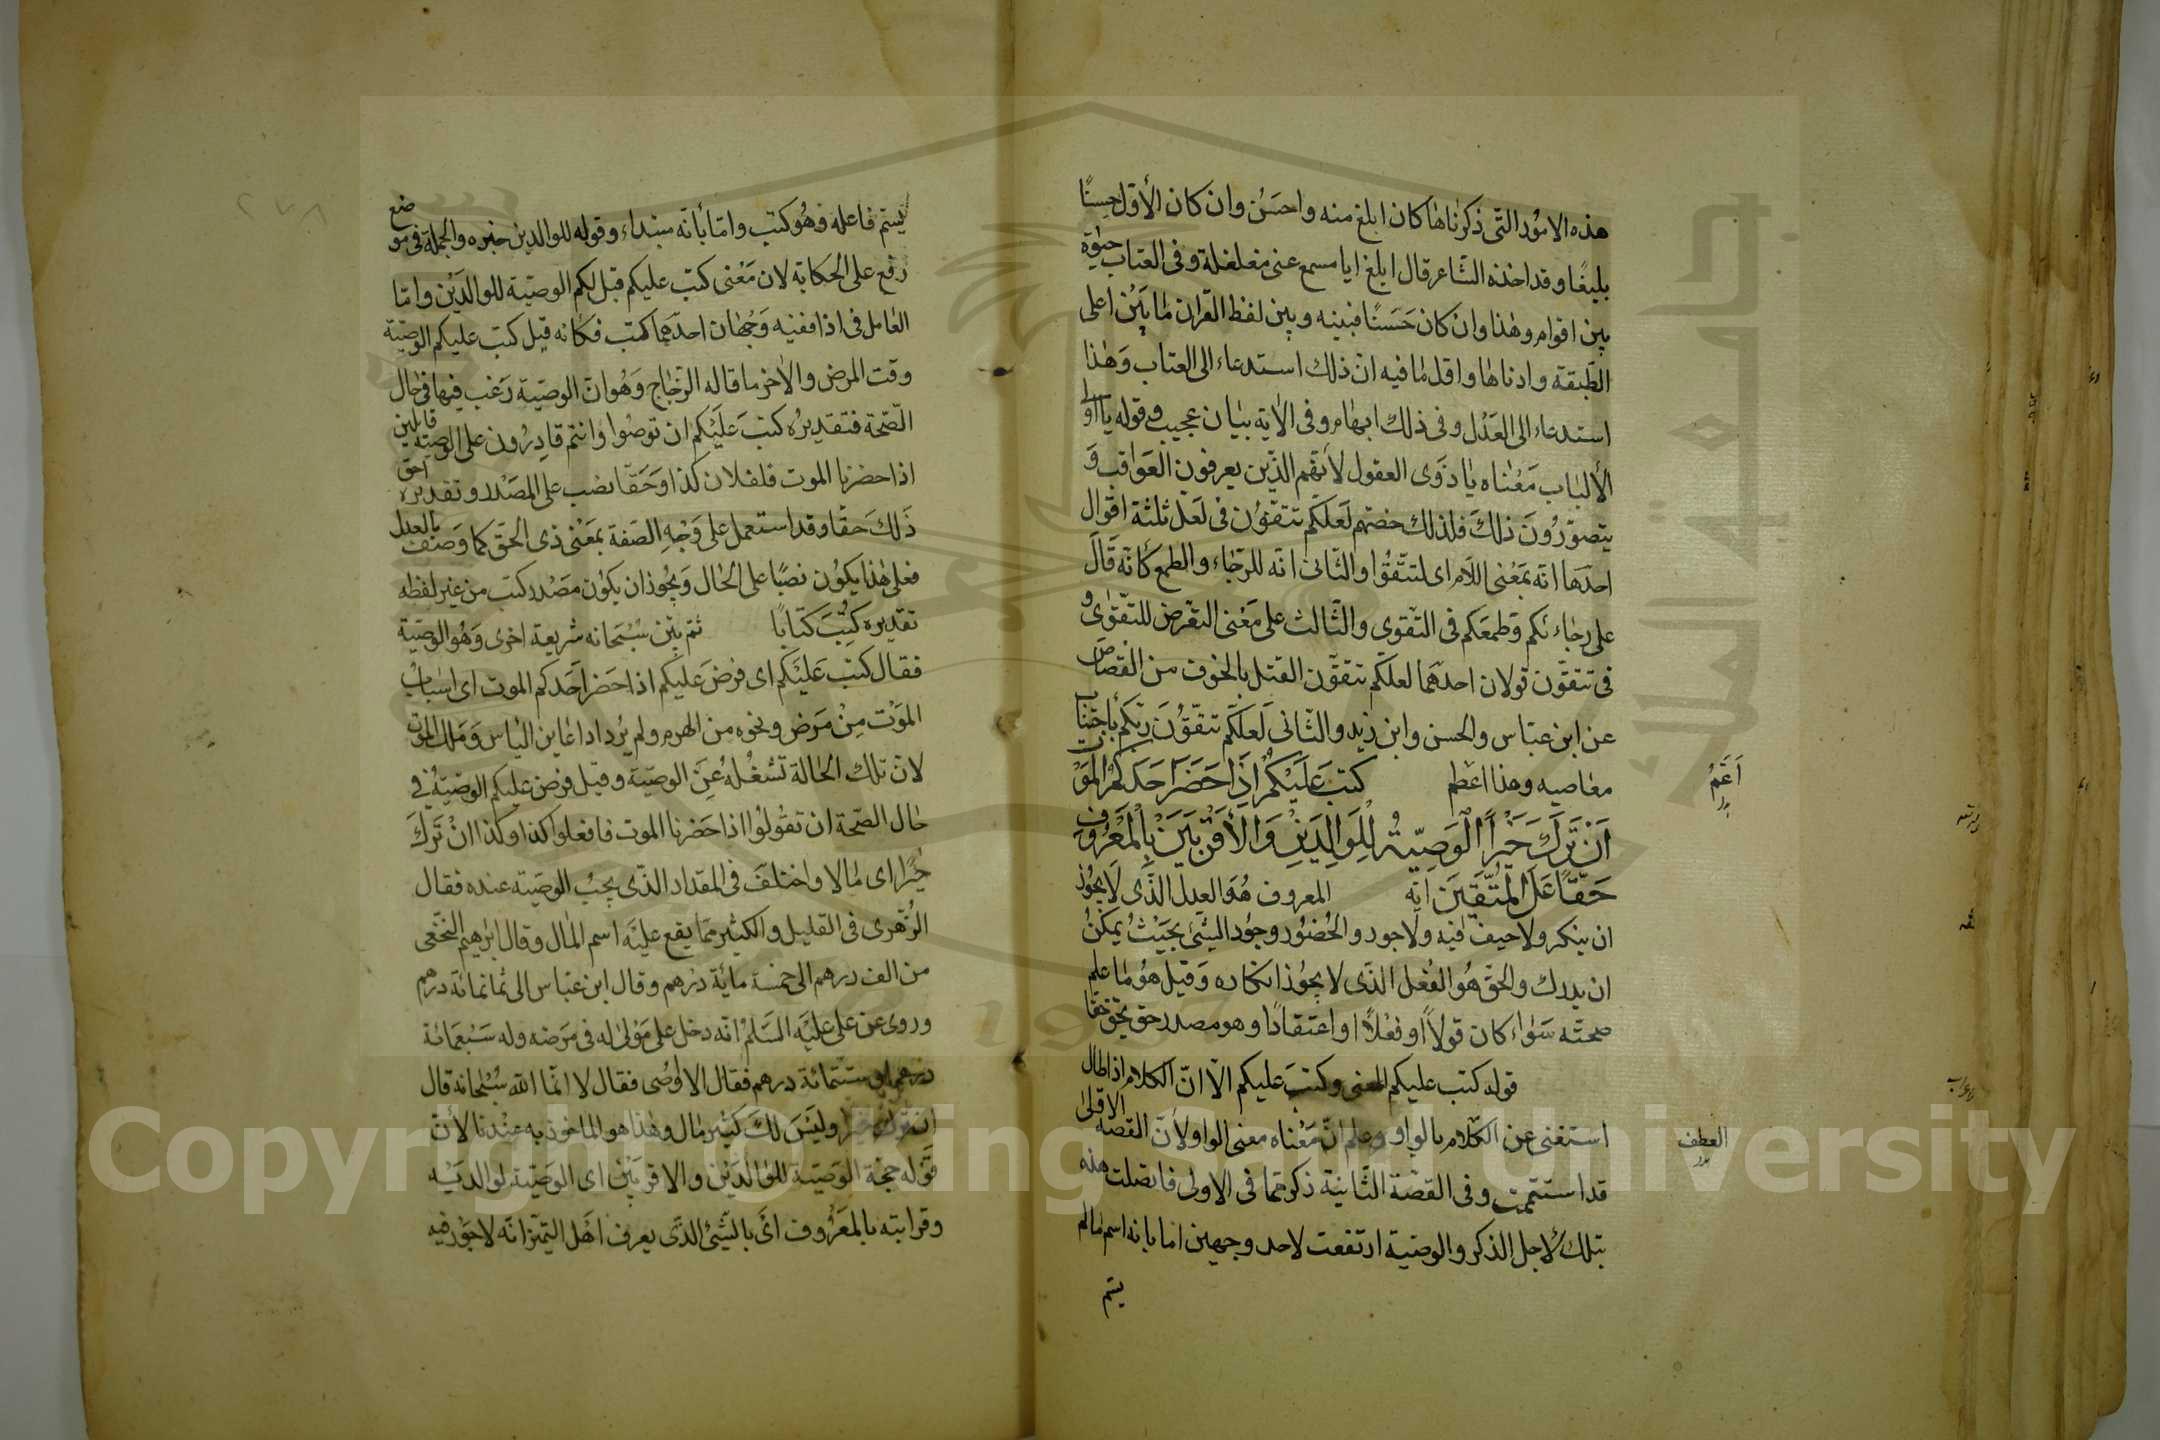 هذه الامور التى ذكرناها كان ابلغ منه واحسن وان كان الأول حسنًا
بليغًا وقد اخذه الشاعر قال ابلغ ابا مسمع عنى مغلغلة وفى العتاب حيوة
بين اقوام وهذا وان كان حسنًا فبينه وبين لفظ القرآن ما بين اعلى
الطبقة وادناها واقل ما فيه ان ذلك استدعاء الى العتاب وهذا
استدعاء الى العدل وفى ذلك ابهام وفى الآية بيان عجيب وقوله يا اولى
الألباب معناه يا ذوى العقول لأنهم الذين يعرفون العواقب و
يتصورون ذلك فلذلك خصهم لعلكم تتقون فى لعل ثلثة اقوال
احدها انه بمعنى اللام اى لتتقوا والثانى انه للرجاء والطمع كأنه قال
على رجاءكم وطمعكم فى التقوى والثالث على معنى التعرض للتقوى و
فى تتقون قولان احدهما لعلكم تتقون القتل بالخوف من القصاص
عن ابن عباس والحسن وابن زيد والثانى لعلكم تتقون ربكم باجتناب
معاصيه وهذا اعظم كتب عليكم اذا حضر احدكم الموت
اعم
ان ترك خيرًا الوصية للوالدين والأقربين بالمعروف
حقًا على المتقين آية المعروف هو العدل الذى لا يجوز
ان ينكر ولا حيف فيه ولا جور والحضور وجود الشئ بحيث يمكن
ان يدرك والحق هو الفعل الذى لا يجوز انكاره وقيل هو ما علم
صحته سواء كان قولًا او فعلًا او اعتقادًا وهو مصدر حق يحق حقًا
قوله كتب عليكم المعنى وكتب عليكم الا ان الكلام اذا طال
استغنى عن الكلام بالواو وعلم ان معناه معنى الواو ولأن القصة الاولى
العطف
قد استتمت وفى القصة الثانية ذكر مما فى الاولى فاتصلت هذه
بتلك لأجل الذكر والوصية ارتفعت لاحد وجهين اما بانه اسم ما لم
يسم
يسم فاعله وهو كتب واما بأنه مبتداء وقوله للوالدين خبره والجملة فى موضع
رفع على الحكاية لان معنى كتب عليكم قيل لكم الوصية للوالدين واما
العامل فى اذا ففيه وجهان احدهما كتب فكانه قيل كتب عليكم الوصية
وقت المرض والآخر ما قاله الزجاج وهو ان الوصية رغب فيها فى حال
الصحة فتقديره كتب عليكم ان توصوا وانتم قادرون على الوصية قائلين
اذا حضرنا الموت فلفلان كذا وحقًا نصب على المصدر وتقديره احق
ذلك حقًا وقد استعمل على وجه الصفة بمعنى ذى الحق كما وصف بالعدل
فعلى هذا يكون نصبًا على الحال ويجوز ان يكون مصدر كتب من غير لفظه
تقديره كتب كتابًا ثم بين سبحانه شريعة اخرى وهو الوصية
فقال كتب عليكم اى فرض عليكم اذا حضر احدكم الموت اى اسباب
الموت من مرض ونحوه من الهرم ولم يرد اذا عاين الباس وملك الموت
لان تلك الحالة تشغله عن الوصية وقيل فرض عليكم الوصية فى
حال الصحة ان تقولوا اذا حضرنا الموت فافعلوا كذا وكذا ان ترك
خيرًا اى مالا واختلف فى المقدار الذى يجب الوصية عنده فقال
الزهرى فى القليل والكثير مما يقع عليه اسم المال وقال ابرهيم النخعى
من الف درهم الى خمسة مائة درهم وقال ابن عباس الى ثمانمائة درهم
وروى عن على عليه السلم انه دخل على مولى له فى مرضه وله سبعمائة
درهم او ستمائة درهم فقال الا اوصى فقال لا انما الله سبحانه قال
ان ترك خيرًا وليس لك كثير مال وهذا هو الماخوذ به عندنا لأن
قوله حجة الوصية للوالدين والاقربين اى الوصية لوالديه
وقرابته بالمعروف اى بالشئ الذى يعرف اهل التميز انه لا جور فيه
Copyright © King Saud University
جامعة الملك سعود
1957